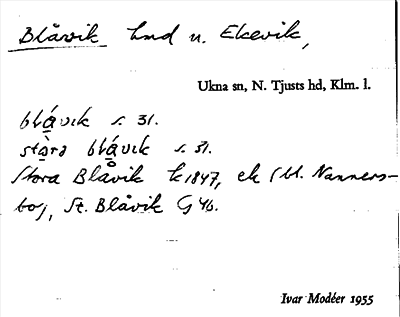 Blåvik lmd u. Ekevik,
Ukna sn, N. Tjusts hd, Klm. l.
blåvik s. 31.
stòra blåvik s. 31.
Stora Blåvik k 1847, ek (Ul. Nanners-
boj, St. Blåvik G 46.
Ivar Modéer 1955